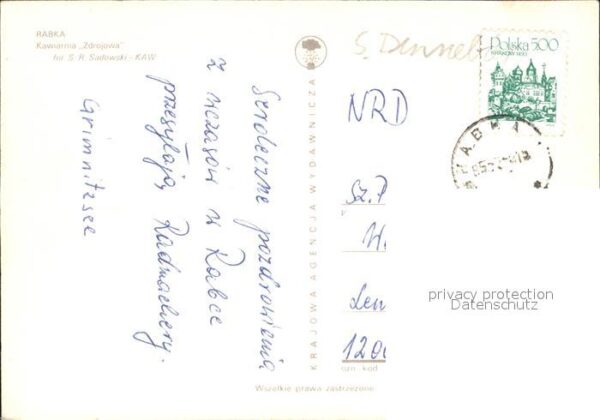 RABKA
Kawiarnia „Zdrojowa"
fot. S. R. Sadowski - KAW
Serdeczne pozdrowienia
z wczasów w Rabce
przesyłają Radmachery.
Grimnitzsee
KRAJOWA AGENCJA WYDAWNICZA
S. Denneb
Polska 5.00
NRD
Sz.P
W.
Len
120
kod
Wszelkie prawa zastrzeżone
RABKA
privacy protection
Datenschutz